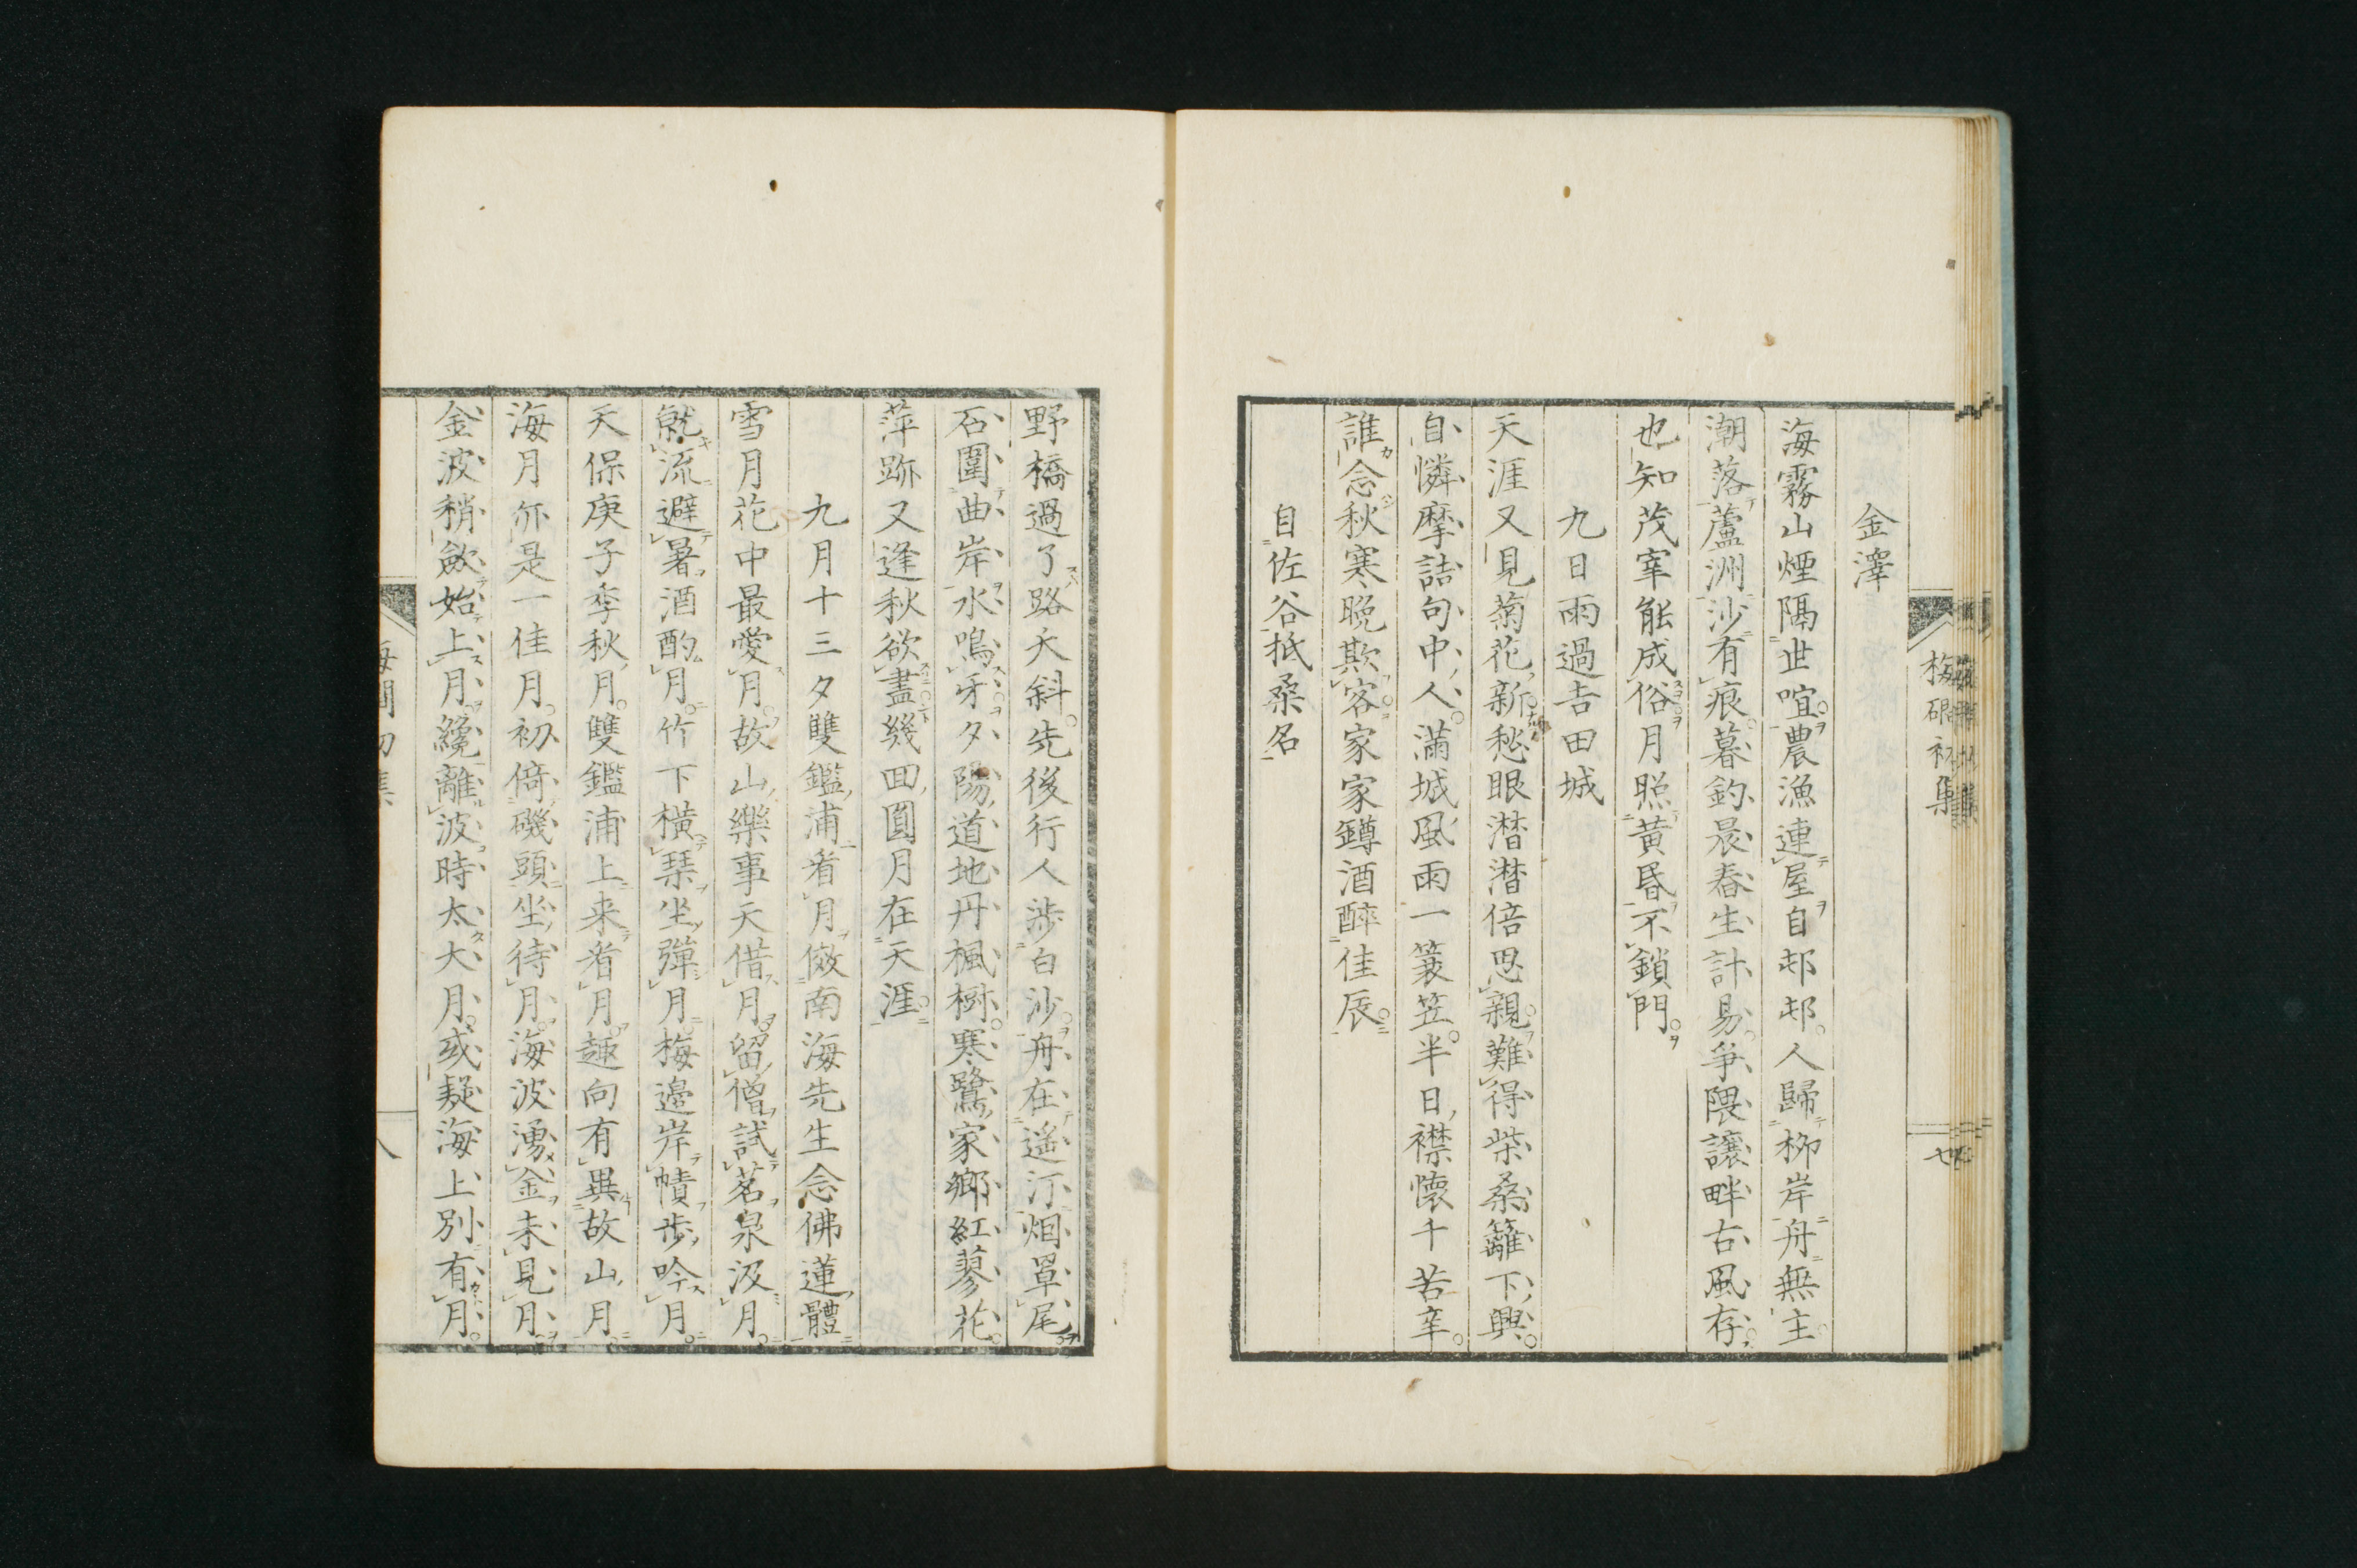 金澤
海霧山煙隔世喧農漁連屋自邨邨人歸柳岸舟無主
潮落蘆洲沙有痕暮釣晨舂生計易爭隈讓畔古風存
也知茂宰能成俗月照黄昏不鎖門
九日雨過吉田城
天涯又見菊花新愁眼潜潜倍思親難得柴桑籬下興
自憐摩詰句中人滿城風雨一簑笠半日襟懐千苦辛
誰念秋寒晩欺客家家鐏酒醉佳辰
自佐谷抵桑名
野橋過了路夭斜先後行人渉白沙舟在遥汀烟罩尾
石圍曲岸水鳴牙夕陽道地丹楓樹寒鷺家郷紅蓼花
萍跡又逢秋欲盡幾回圓月在天涯
九月十三夕雙鑑浦看月倣南海先生念佛蓮體
雪月花中最愛月故山樂事天借月留僧試茗泉汲月
就流避暑酒酌月竹下横琴坐彈月梅邊岸幘歩吟月
天保庚子季秋月雙鑑浦上来看月趣向有異故山月
海月尓是一佳月初倚磯頭坐待月海波湧金未見月
金波稍歛始上月纔離波時太大月或疑海上別有月
初集
七
八